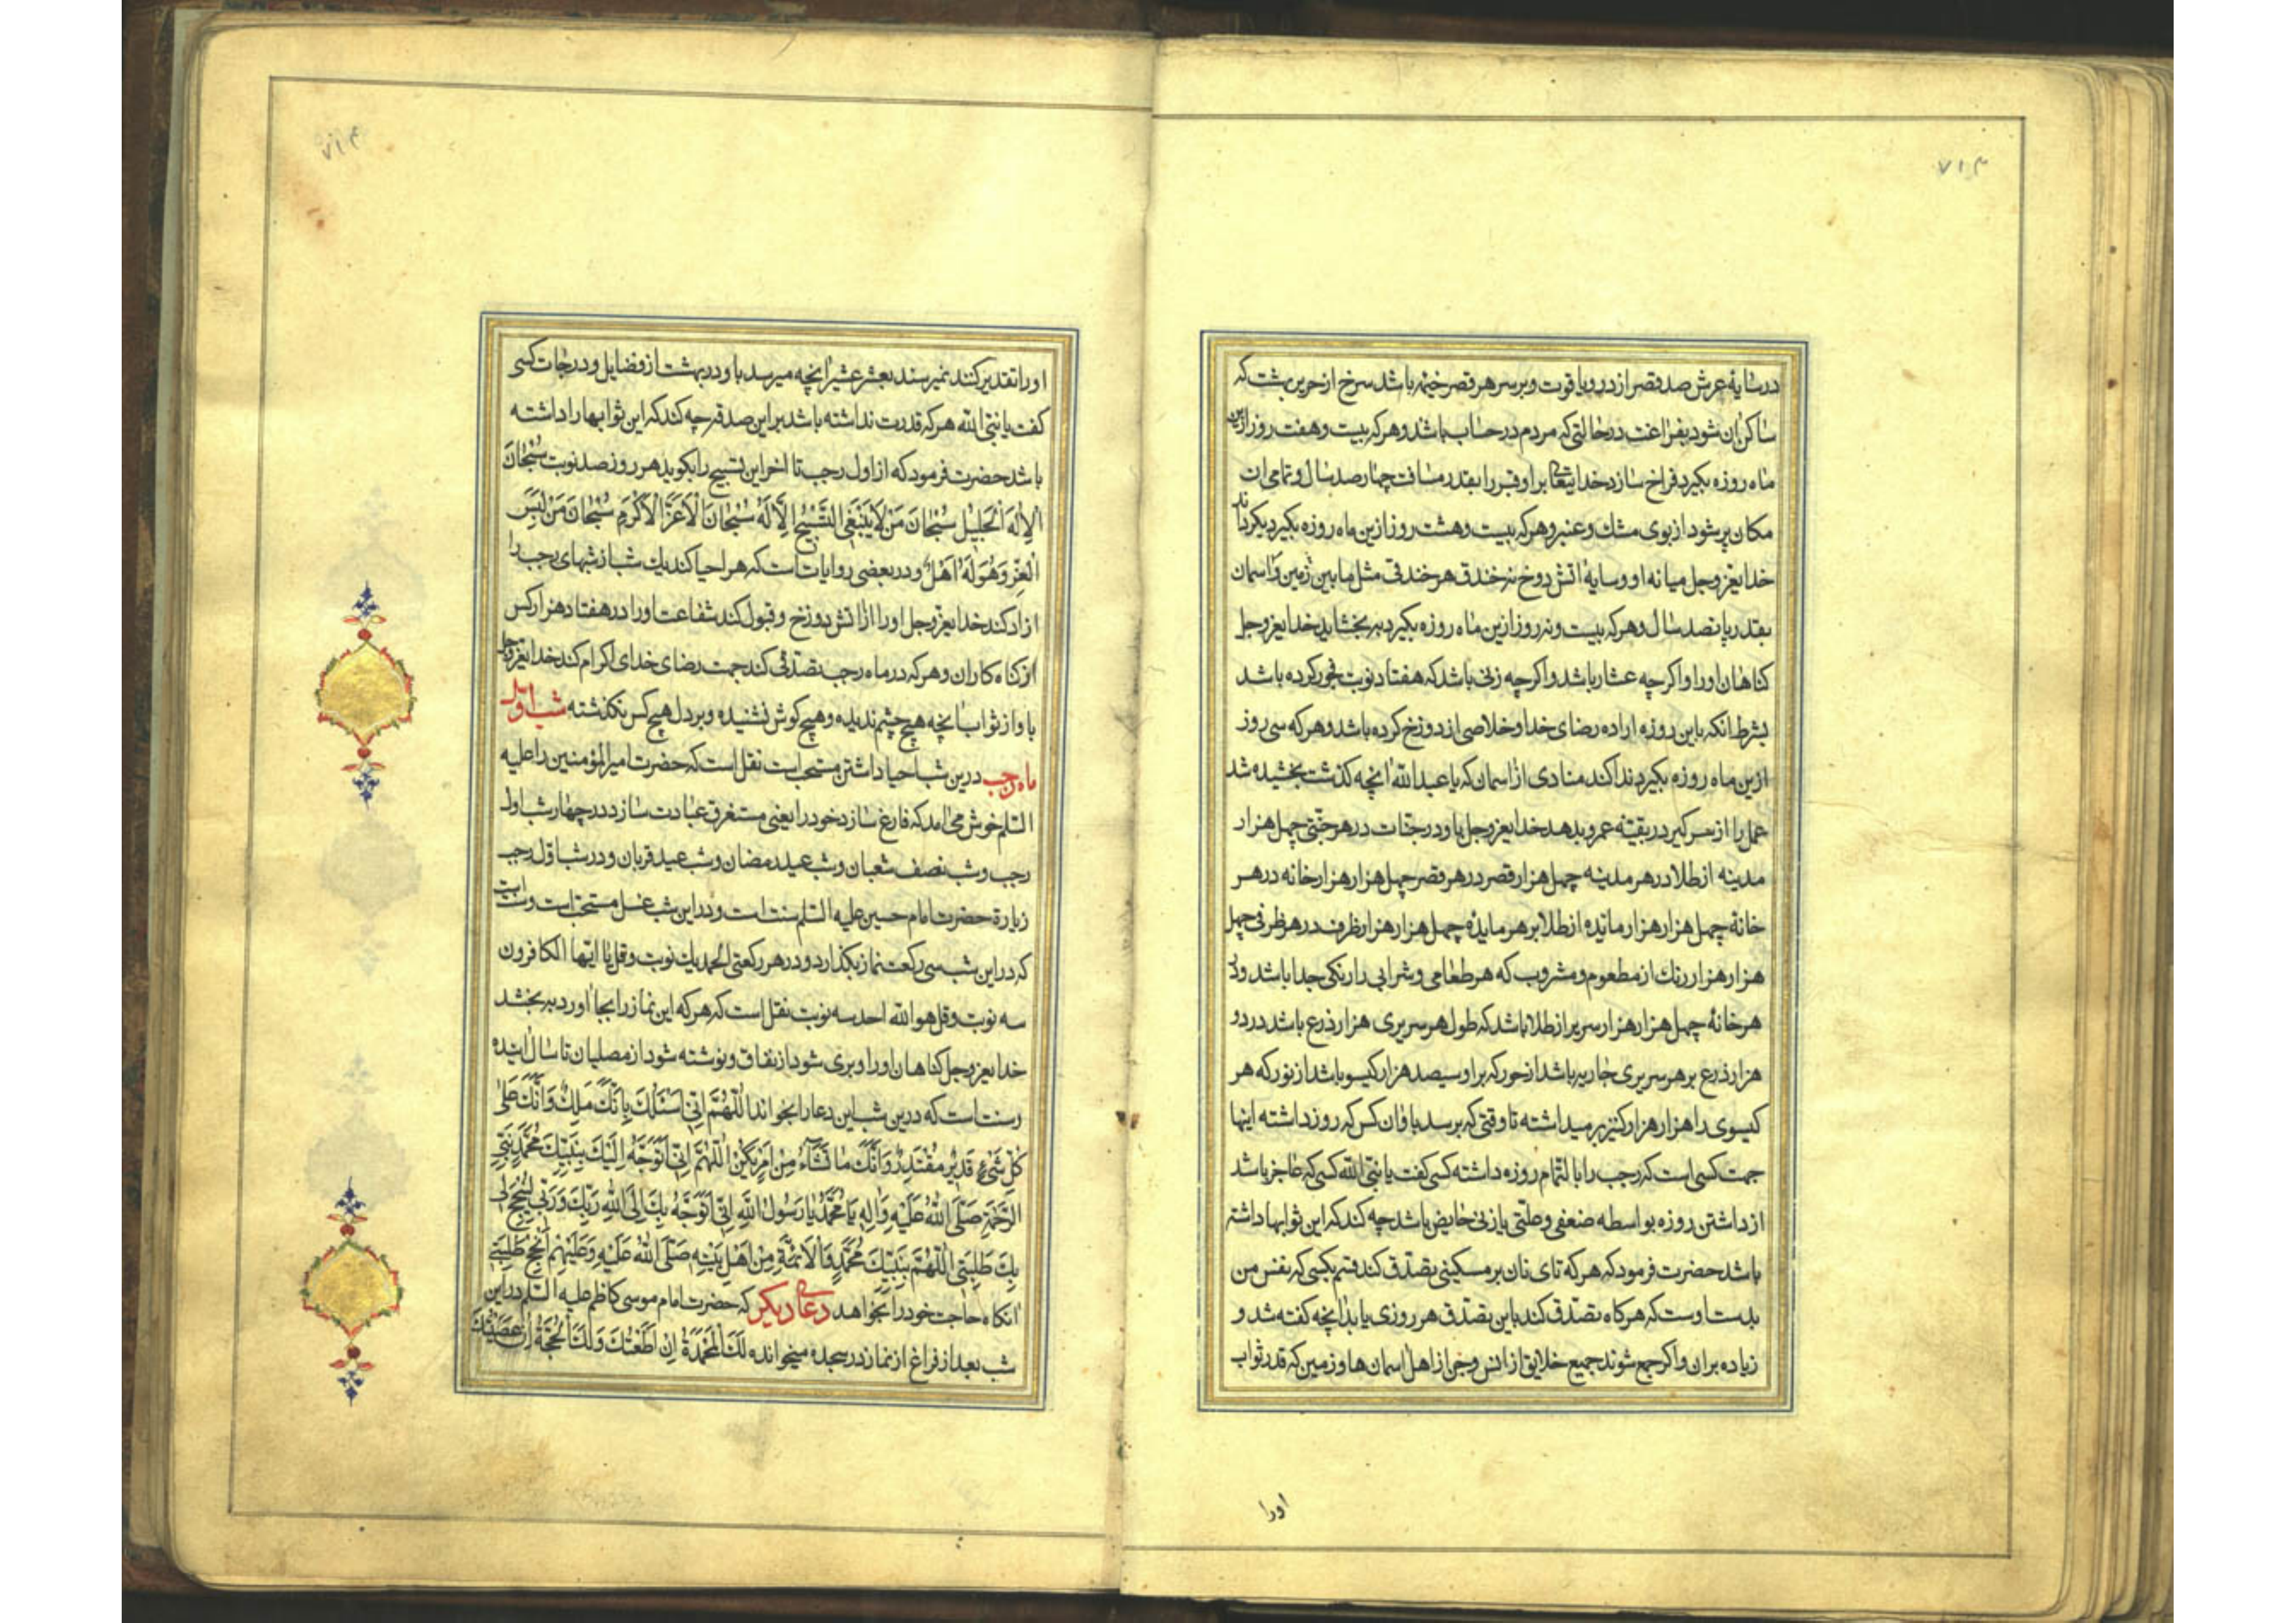 ۷۱۳
در سایه عرش صد قصر از در و یاقوت و بر سر هر قصر خیمه باشد سرخ از حریر بهشت که
ساکن ان شود بفراغت در حالتی که مردم در حساب باشد و هر که بیست و هفت روز ازین
ماه روزه بکیرد فراخ سازد خدایتعالی براو قبر را بقدر مسافت چهارصد سال و تمامی ان
مکان پر شود از بوی مشك و عنبر و هر که بیست و هشت روز ازین ماه روزه بکیرد بکرداند
خدایعز وجل میانه او و سایهٔ اتش دوخ نه خندق هر خندقی مثل مابین زمین و اسمان
بقدر پانصد سال و هر که بیست و نه روز ازین ماه روزه بکیرد به بخشاید خدایعز وجل
کناهان او را و اکر چه عشار باشد و اکر چه زنی باشد که هفتاد نوبت فجور کرده باشد
بشرط انکه باین روزه اراده رضای خدا و خلاصی از دوزخ کرده باشد و هر که سی روز
ازین ماه روزه بکیرد ندا کند منادی از اسمان که یا عبد الله انچه کذشت بخشیده شد
عمل را از سر کیر در بقیّه عمر و بدهد خدایعز وجل باو در جنات در هر جنّتی چهل هزار
مدینه از طلا در هر مدینه چهل هزار قصر در هر قصر چهل هزار هزار خانه در هر
خانهٔ چهل هزار هزار مائده از طلا بر هر مایدهٔ چهل هزار هزار ظرف در هر ظرفی چهل
هزار هزار رنك از مطعوم و مشروب که هر طعامی و شرابی را رنکی جدا باشد و در
هر خانهٔ چهل هزار هزار سریر از طلا باشد که طول هر سریری هزار ذرع باشد در دو
هزار ذرع بر هر سریری جاریه باشد از حور که براو سیصد هزار کیسو باشد از نور که هر
کیسوی را هزار هزار کنیز بر میداشته تا وقتی که برسد باو ان کس که روز داشته اینها
جهت کسی است که رجب را بالتّمام روزه داشته کسی کفت یا نبیّ الله کسی که عاجز باشد
از داشتن روزه بواسطه ضعفی و علّتی یا زنی حایض باشد چه کند که این ثوابها داشته
باشد حضرت فرمود که هر که تای نان بر مسکینی تصدّق کند قسم بکسی که نفس من
بدست اوست که هرکاه تصدّق کند باین تصدّق هر روزی یابد انچه کفته شد و
زیاده بران و اکر جمع شوند جمیع خلایق از انس و جن از اهل اسمان ها و زمین که قدر ثواب
اورا
۷۱۴
او را تقدیر کنند نمیرسند بعشر عشیر انچه میرسد باو در بهشت از فضایل و درجات کسی
کفت یا نبیّ الله هر که قدرت نداشته باشد براین صدقه چه کند که این ثوابها را داشته
باشد حضرت فرمود که از اول رجب تا اخر این تسبیح را بکوید هر روز صد نوبت سُبْحانَ
الاِلهِ الْجَلیلِ سُبْحانَ مَنْ لا یَنْبَغِی التَّسْبیحُ اِلّا لَهُ سُبْحانَ الْاَعَزِّ الْاَکْرَمِ سُبْحانَ مَنْ لَبِسَ
الْعِزَّ وَهُوَ لَهُ اَهْلٌ و در بعضی روایات است که هر احیا کند یك شب از شبهای رجب را
ازاد کند خدایعز وجل او را از اتش دوزخ و قبول کند شفاعت او را در هفتاد هزار کس
از کناه کاران و هر که در ماه رجب تصدّقی کند جهت رضای خدای اکرام کند خدایعز وجل
باو از ثواب انچه هیچ چشم ندیده و هیچ کوش نشنیده و بر دل هیچ کس نکذشته شب اول
ماه رجب درین شب احیا داشتن مستحب است نقل است که حضرت امیر المؤمنین را علیه
السّلم خوش می امد که فارغ سازد خود را یعنی مستغرق عبادت سازد در چهار شب اول
رجب و شب نصف شعبان و شب عید رمضان و شب عید قربان و در شب اوّل رجب
زیارة حضرت امام حسین علیه السّلم سنت است و در این شب غسل مستحبّ است و سنت است
که در این شب سی رکعت نماز بکذارد و در هر رکعتی الحمد یك نوبت و قل یا ایّها الکافرون
سه نوبت و قل هو الله احد سه نوبت نقل است که هر که این نماز را بجا اورد به بخشد
خدایعز وجل کناهان او را و بری شود از نفاق و نوشته شود از مصلیان تا سال اینده
و سنت است که درین شب این دعا را بخواند اَللّهُمَّ اِنّی اَسْئَلُكَ بِاَنَّكَ مَلِكٌ وَاَنَّكَ عَلی
کُلِّ شَیْءٍ قَدیرٌ مُقْتَدِرٌ وَاَنَّكَ ما تَشاءُ مِنْ اَمْرٍ یَکُنْ اَللّهُمَّ اِنّی اَتَوَجَّهُ اِلَیْكَ بِنَبِیِّكَ مُحَمَّدٍ نَبِیِّ
الرَّحْمَةِ صَلَّی اللهُ عَلَیْهِ وَالِهِ یا مُحَمَّدُ یا رَسُولَ اللهِ اِنّی اَتَوَجَّهُ بِكَ اِلَی اللهِ رَبِّكَ وَرَبّی لِیُنْجِحَ لی
بِكَ طَلِبَتی اَللّهُمَّ بِنَبِیِّكَ مُحَمَّدٍ وَالْاَئِمَّةِ مِنْ اَهْلِ بَیْتِهِ صَلَّی اللهُ عَلَیْهِ وَعَلَیْهِمْ اَنْجِحْ طَلِبَتی
انکاه حاجت خود را بخواهد دعای دیکر که حضرت امام موسی کاظم علیه السّلم در این
شب بعد از فراغ از نماز در سجده میخوانده لَكَ الْمَحْمَدَةُ اِنْ اَطَعْتُكَ وَلَكَ الْحُجَّةُ اِنْ عَصَیْتُكَ